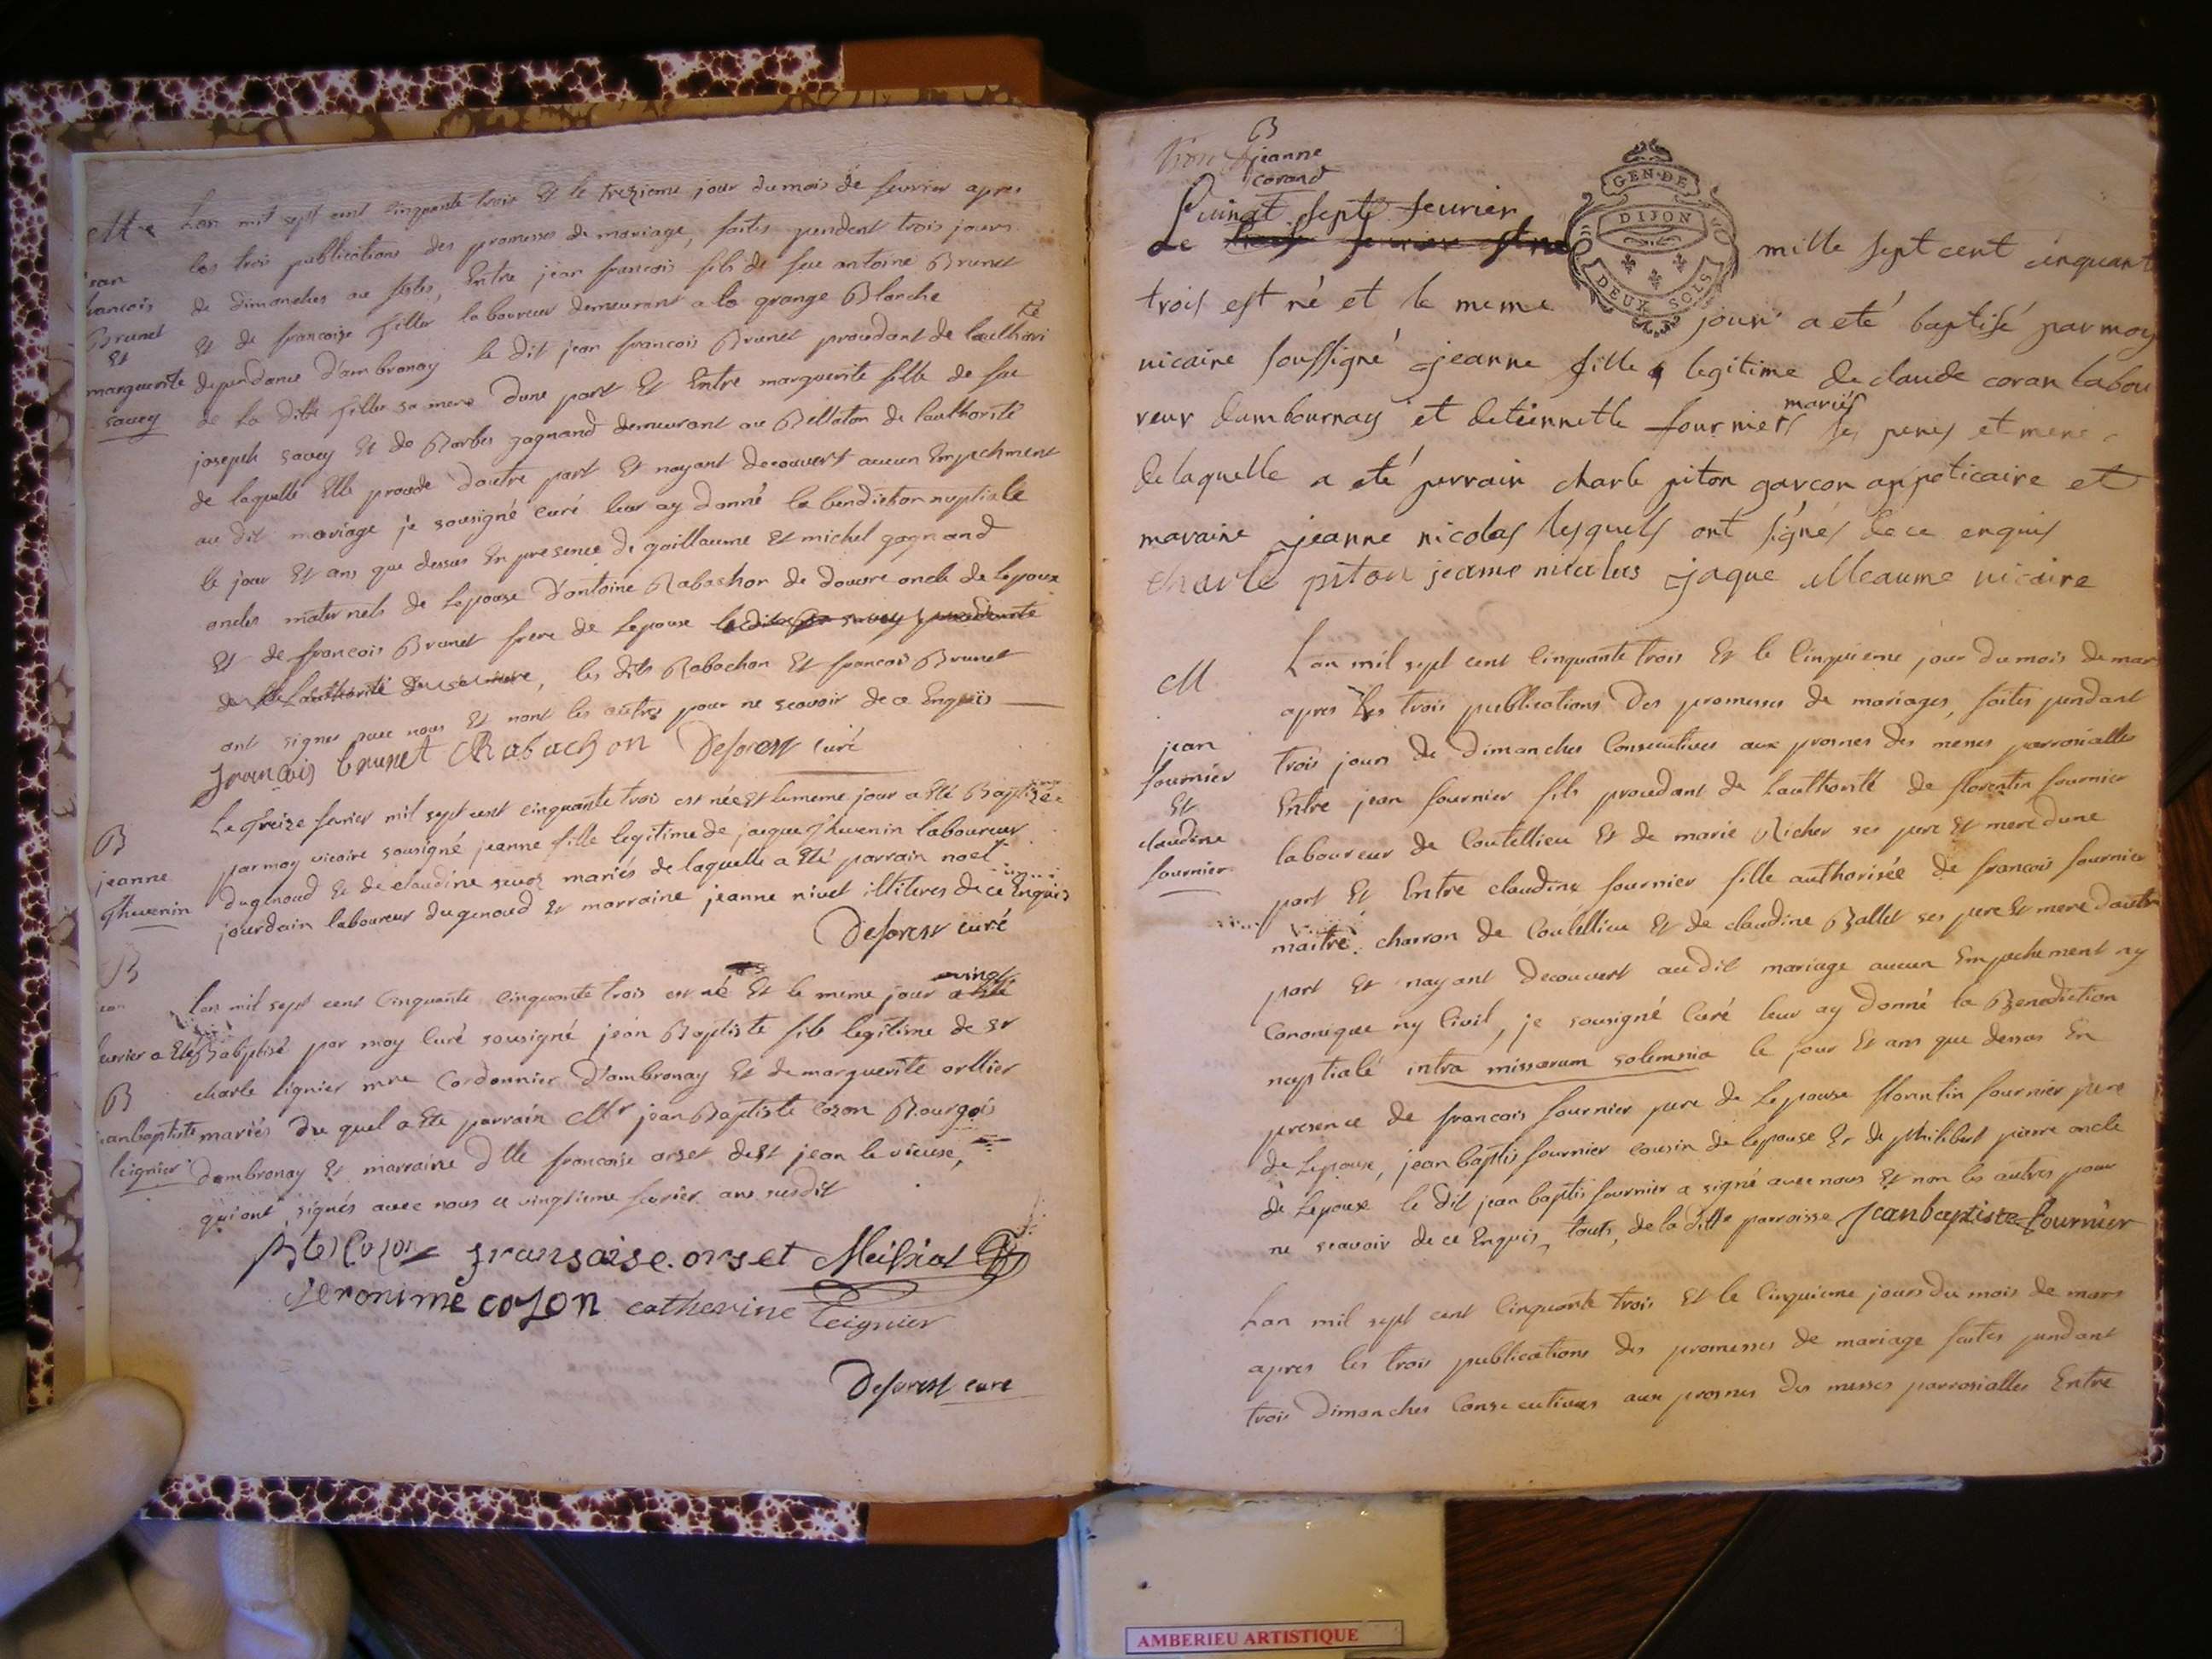 Lan mil sept cent cinquante trois Et le trezieme jour du mois de fevrier apres
les trois publications des promesses de mariage, faites pendent trois jours
de dimanches ou festes, Entre jean francois fils de feu antoine Brunet
Et de francoise filler laboureur demeurant a la grange Blanche
dependance d'ambronay le dit jean francois Brunet procedant de lauthori té
de la ditte filler sa mere dune part Et Entre marguerite fille de feu
joseph savey Et de Barbe gagnand demeurant au Bellaton de lauthorité
de laquelle Elle procede dautre part Et nayant decouvert aucun Empechment
au dit mariage je sousigné curé leur ay donné la bendiction nuptiale
le jour Et ans que dessus En presence de guillaume Et michel gagnand
oncles maternels de Lepouse d'antoine Rabachon de douvre oncle de Lepoux
Et de francois Brunet frere de Lepoux
les dits Rabachon Et francois Brunet
ont signes avec nous Et nont les autres pour ne scavoir de ce Enquis
francois brunet Rabachon Deforest curé
jean
francois
Brunet
Et
marguerite
savey
Le treize fevrier mil sept cent cinquante trois est née Et le meme jour a Eté Baptizée
par moy vicaire sousigné jeanne fille legitime de jacque Thevenin laboureur
dugenoud Et de claudine mariés de laquelle a Eté parrain noel
jourdain laboureur dugenoud Et marraine jeanne nivet illiteres de ce Enquis
Deforest curé
B
jeanne
Thevenin
B
Lan mil sept cent Cinquante cinquante trois est né Et le meme jour vingt
fevrier a Eté Babptisé par moy Curé sousigné jean Baptiste fils legitime de sr
charle Lignier mre Cordonnier D'ambronay Et de marguerite orllier
mariés Du quel a Ete parrain Mr jean Baptiste Cozon Bourgois
dambronay Et marraine dlle francoise orset de st jean le vieux,
qui ont signés avec nous ce vingtieme fevrier ans susdit
B
jeanbaptiste
leignier
Bte Cozon fransoise orset
jeronime cozon catherine Leignier
Deforest curé
B
jeanne
corand
vingt sept fevrier
Le mille sept cent cinquante
trois est né et le meme jour a eté baptisé par moy
vicaire soussigné jeanne fille legitime de claude coran labou
reur dambournay et detiennette fournier mariés ses peres et mere
de laquelle a eté perrain charle piton garcon appoticaire et
maraine jeanne nicolas lesquels ont signés de ce enquis
charle piton jeanne nicolas jaque Meaume vicaire
GEN·DE
DIJON
DEUX SOLS
M
jean
fournier
Et
claudine
fournier
Lan mil sept cent Cinquante trois Et le Cinquieme jour du mois de mar
apres les trois publications Des promesses de mariages, faites pendant
trois jours de dimanches Consecutives aux prosnes des meses parrosialles
Entre jean fournier fils procedant de Lauthorité de florentin fournier
laboureur de Coutellieu Et de marie Richer ses pere Et mere dune
part Et Entre claudine fournier fille authorisée de francois fournier
maitre charron de Coutellieu Et de claudine Ballet ses pere Et mere dautre
part Et nayant decouvert au dit mariage aucun Empechement ny
Canonique ny Civil, je sousigné Curé leur ay donné la Benediction
nuptiale intra missarum solemnia le jour Et ans que dessus En
presence de francois fournier pere de Lepouse florentin fournier pere
de Lepoux, jean baptis fournier cousin de lepouse Et de philibert pierre oncle
de Lepoux le dit jean baptis fournier a signé avec nous Et non les autres pour
ne scavoir de ce Enquis, touts, de la ditte parroisse Jeanbaptiste fournier
Lan mil sept cent Cinquante trois Et le Cinquieme jours du mois de mars
apres les trois publications des promesses de mariage faites pendant
trois dimanches Consecutives aux prosnes des messes parrosialles Entre
AMBERIEU ARTISTIQUE